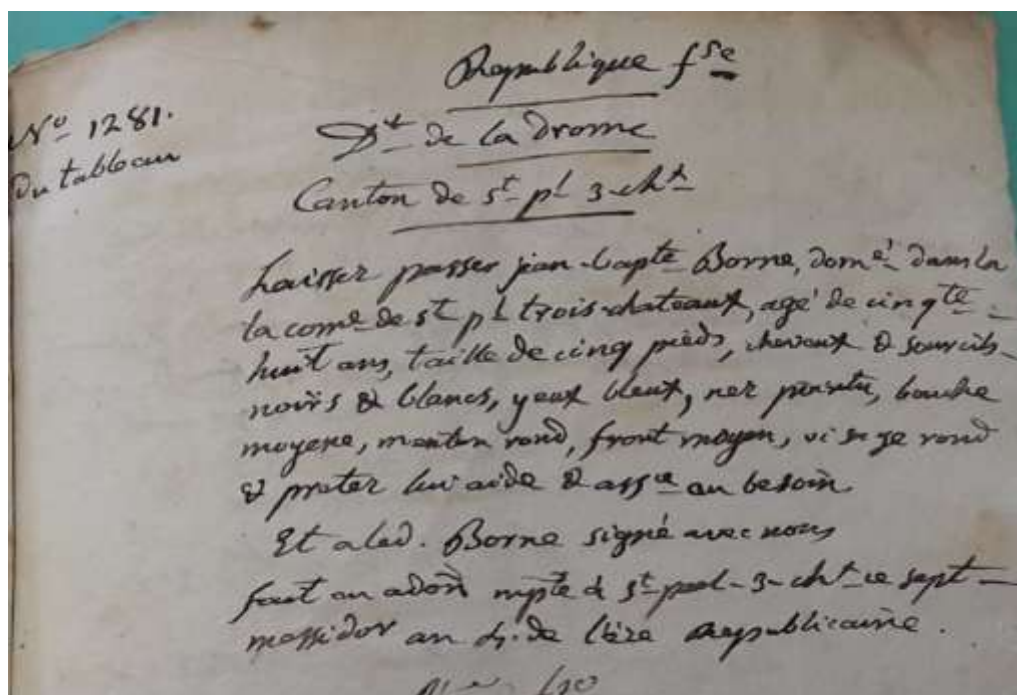 Republique fse
No 1281.
Du tableau
Dt de la Drome
Canton de st pl 3-chx
Laisser passer jean-bapte Borne, domé dans la
la come de st pl trois-chateaux, agé de cinqte
huit ans, taille de cinq pieds, cheveux & sourcils
noirs & blancs, yeux bleux, nez pointu, bouche
moyene, menton rond, front moyen, visage rond
& preter lui aide & assce au besoin.
Et a led. Borne signé avec nous
fait en adon mple à st paul-3-chx ce sept
messidor an 4. de l'ère Republicaine.